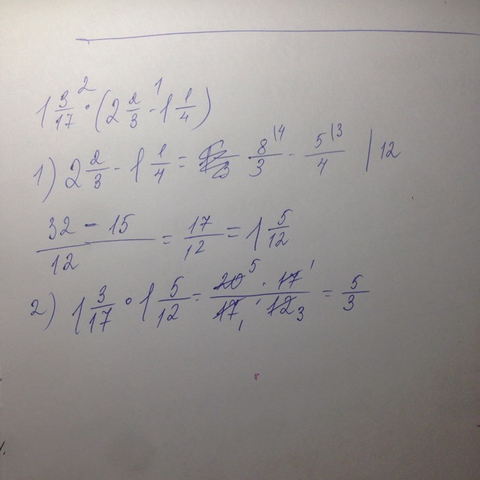 1 3/17 ·² (2 2/3 -¹ 1 1/4)
1) 2 2/3 - 1 1/4 = 8/3 |4 - 5/4 |3 | 12
32 - 15/12 = 17/12 = 1 5/12
2) 1 3/17 · 1 5/12 = 20⁵ · 17¹/17₁ · 12₃ = 5/3